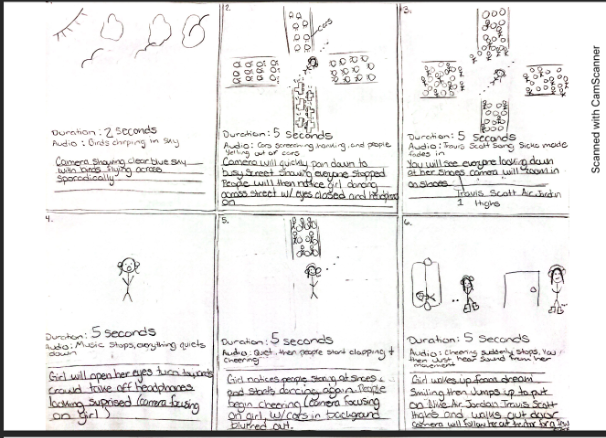 Duration: 2 Seconds
Audio: Birds chirping in sky
Camera showing clear blue sky
with birds flying across
sporadically
2.
cars
Duration: 5 Seconds
Audio: Cars screeching, honking, and people
yelling out of cars
Camera will quickly pan down to
busy street showing everyone stopped
People will then notice girl dancing
across street w/ eyes closed and headphones
on
3.
Duration: 5 Seconds
Audio: Travis Scott Song Sicko mode
fades in
You will see everyone looking down
at her shoes camera will zoom in
on shoes
Travis Scott Air Jordan
1 Highs
4.
Duration: 5 Seconds
Audio: Music stops, everything quiets
down
Girl will open her eyes turn towards
crowd take off headphones
looking suprised (camera focusing
on girl)
5.
Duration: 5 Seconds
Audio: Quiet, then people start clapping +
cheering
Girl notices people staring at shoes &
starts dancing again. People
begin cheering (camera focusing
on girl, w/ cars in background
blurred out.
6.
Duration: 5 Seconds
Audio: Cheering suddenly stops, You
then just hear sound from her
movement
Girl wakes up from dream
Smiling then Jumps up to put
on Jordan Travis Scott
Highs and walks out door
camera will follow her out
Scanned with CamScanner